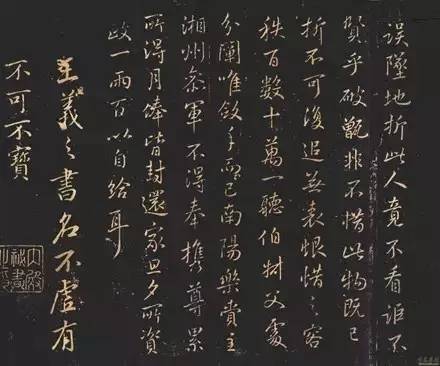 誤墜地折此人竟不看詎不
賢乎破甑非不惜此物既已
折不可復追無哀恨惜之容
秩百數十萬一聽伯樹父處
分闌唯斂手而已南陽樂賁主
湘州叅軍不得奉攜尊累
所得月俸皆封還家旦夕所資
政一兩百以自給耳
王羲之書名不虛有
不可不寶